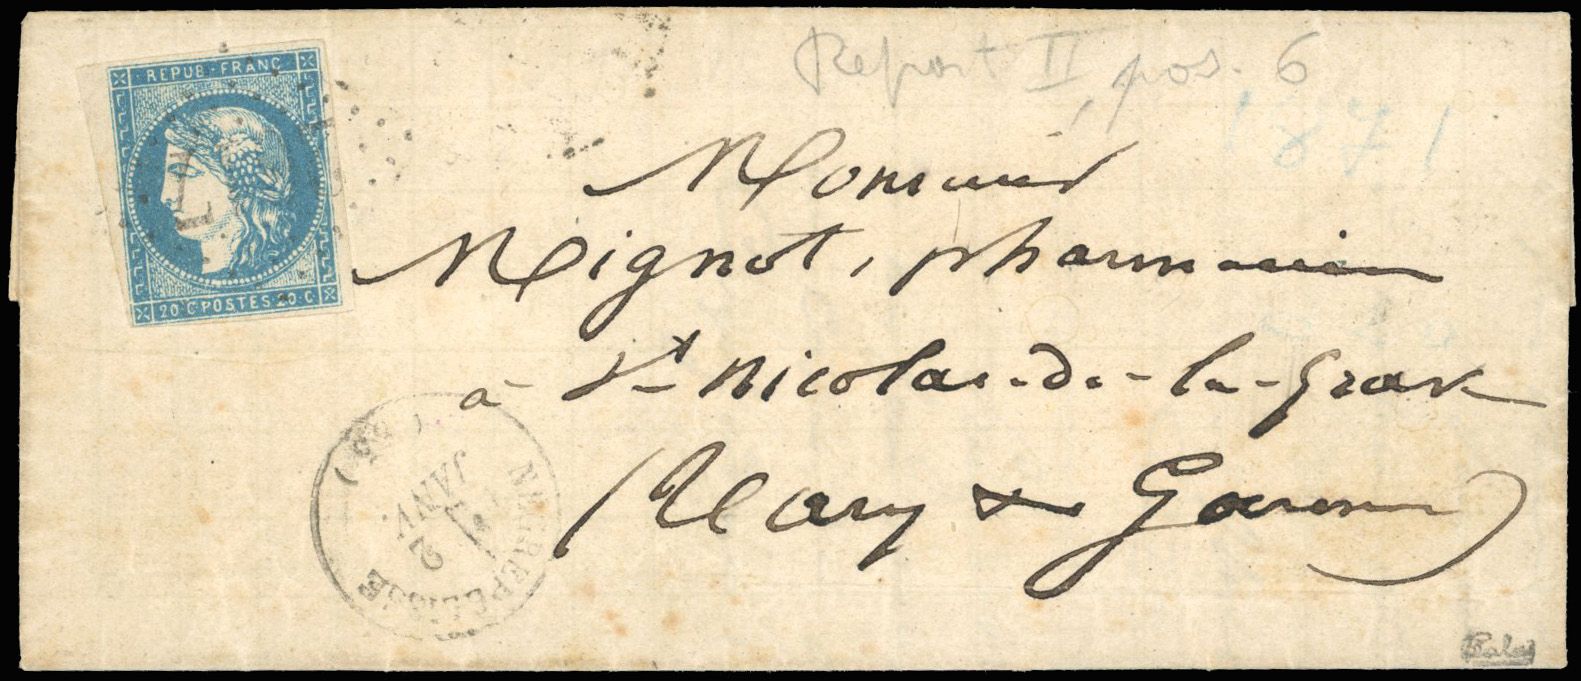 REPUB·FRANC
20·C·POSTES·20·C
Report II, pos. 6
1871
Monsieur
Mignot, pharmacien
à St Nicolas-de-la-Grave
(Tarn & Garonne)
NÈGREPELISSE
2
JANV.